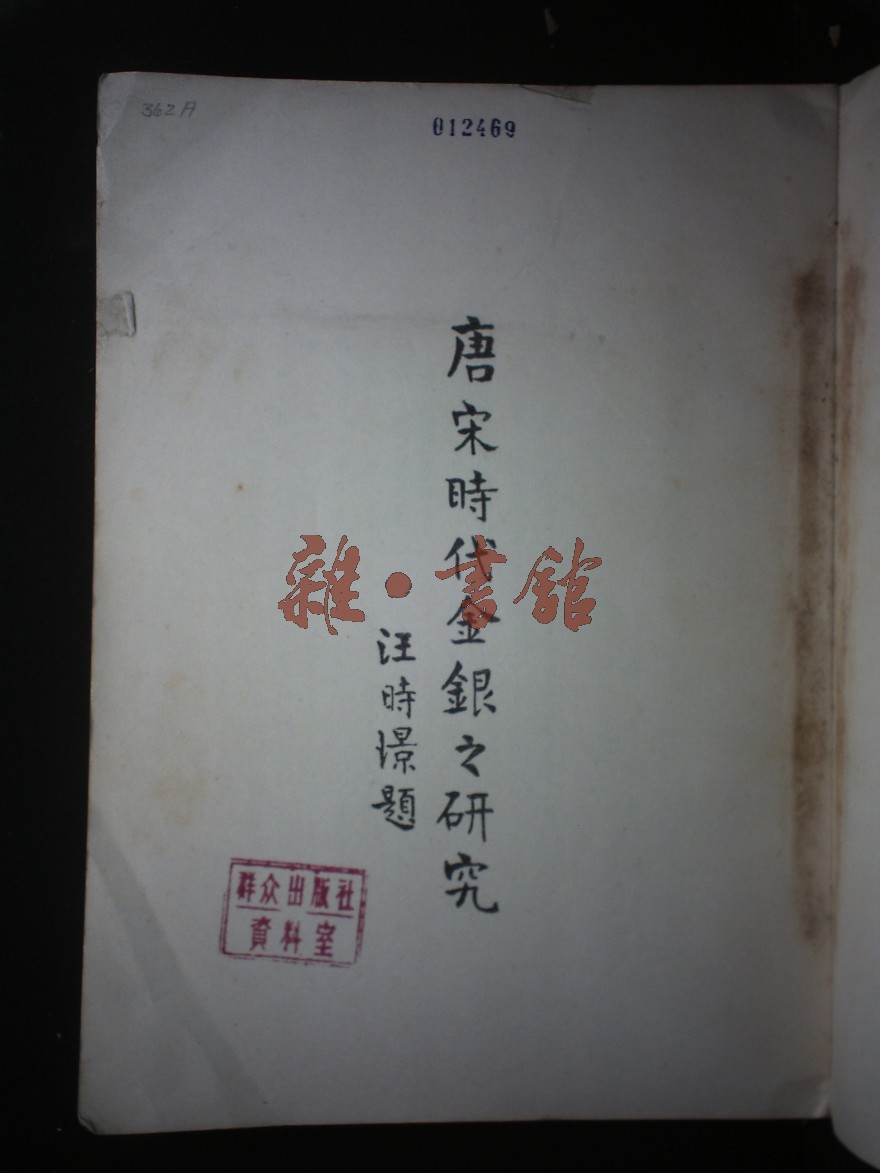 362A
012469
唐宋時代金銀之研究
汪時璟題
雜·書館
群众出版社
資料室